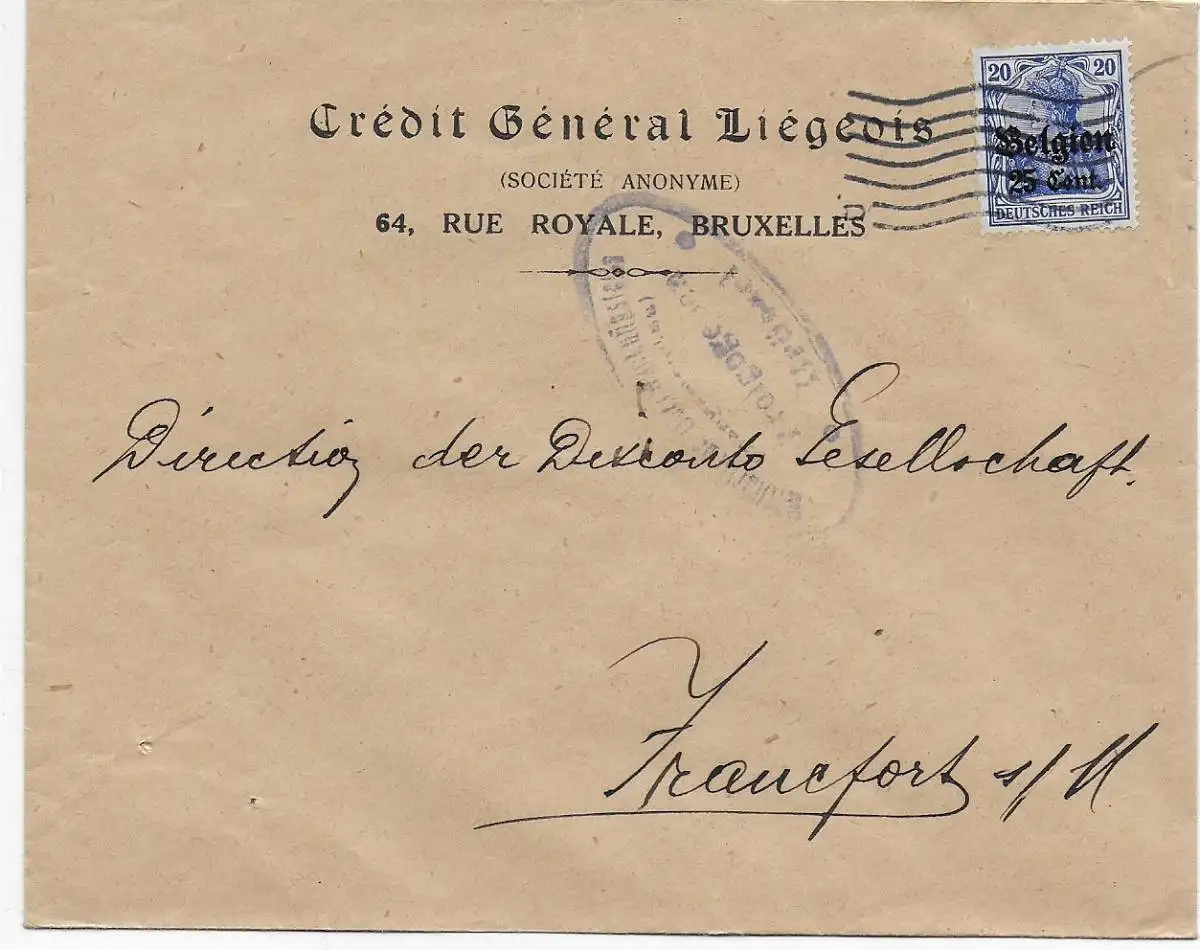 Crédit Général Liégeois
(SOCIÉTÉ ANONYME)
64, RUE ROYALE, BRUXELLES
20 20
Belgien
25 Cent.
DEUTSCHES REICH
Direction der Disconto Gesellschaft.
Francfort s/M